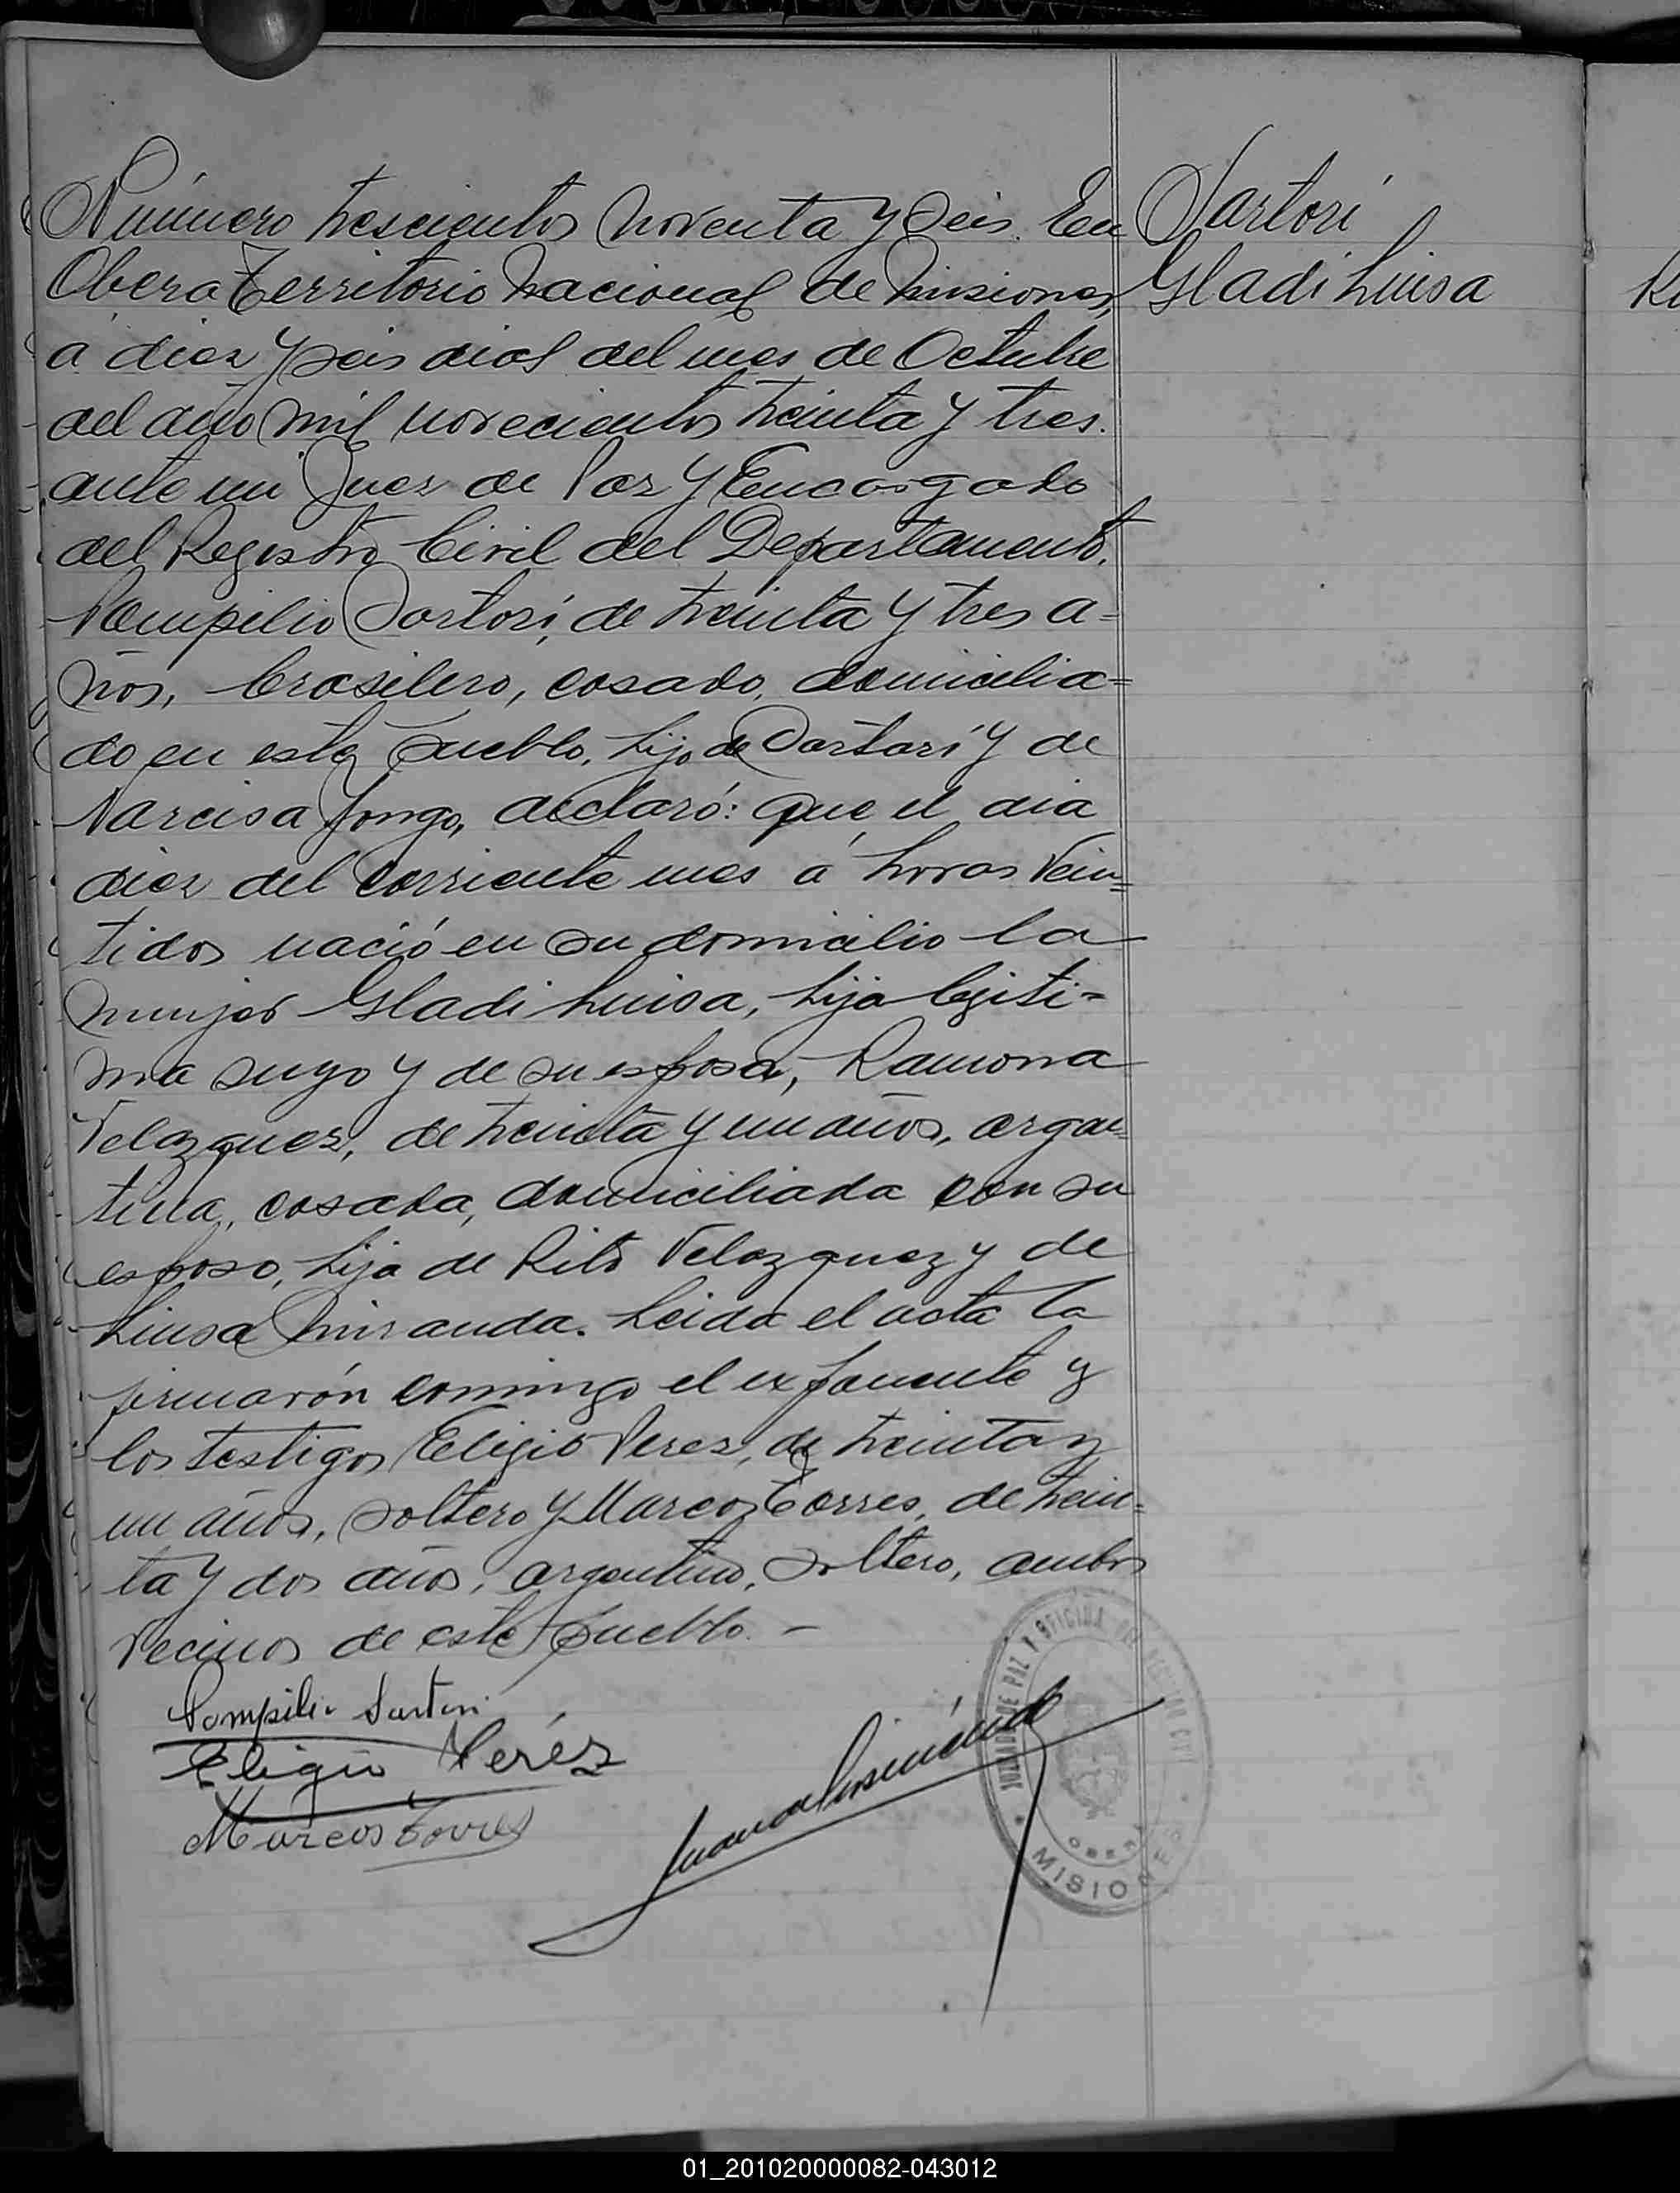 Número trescientos noventa y seis. En
Obera Territorio Nacional de Misiones,
a diez y seis dias del mes de Octubre
del año mil novecientos treinta y tres.
ante mi Juez de Paz y Encargado
del Registro Civil del Departamento.
Pompilio Sartori, de treinta y tres a=
ños, brasilero, casado, domicilia=
do en este pueblo, hijo de Sartori y de
Narcisa declaró: que el dia
diez del corriente mes a horas vein=
tidos nació en su domicilio la
mujer Gladi Luisa, hija legiti=
ma suyo y de su esposa, Ramona
Velazquez, de treinta y un años, argen=
tina, casada, domiciliada con su
esposo, hija de Rito Velazquez y de
Luisa Miranda. Leida el acta la
firmarón comingo el exponente y
los testigos Eligio Perez, de treinta y
un años, soltero y Marcos Torres, de trein=
ta y dos años, argentino, soltero, ambos
vecinos de este pueblo. —
Pompilio Sartori
Eligio Peréz
Marcos Torres
JUZGADO DE PAZ Y OFICINA DEL REGISTRO CIVIL
OBERA
MISIONES
Sartori
Gladi Luisa
01_201020000082-043012